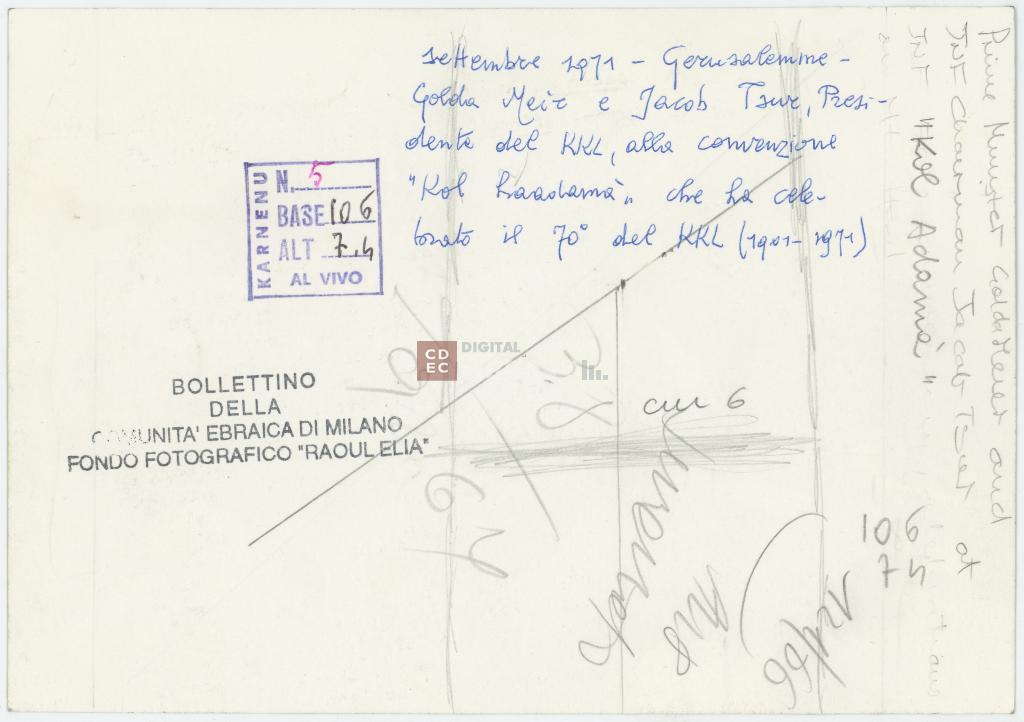 settembre 1971 - Gerusalemme -
Golda Meir e Jacob Tsur, Presi-
dente del KKL, alla convenzione
"Kol haadamà" che ha cele-
brato il 70° del KKL (1901-1971)
KARNENU
N. 5
BASE 106
ALT 7.4
AL VIVO
CDEC
DIGITAL
BOLLETTINO
DELLA
COMUNITA' EBRAICA DI MILANO
FONDO FOTOGRAFICO "RAOUL ELIA"
cm 6
106
74
Prime Minister Golda Meir and
JNF Chairman Jacob Tsur at
JNF "Kol Adamà"